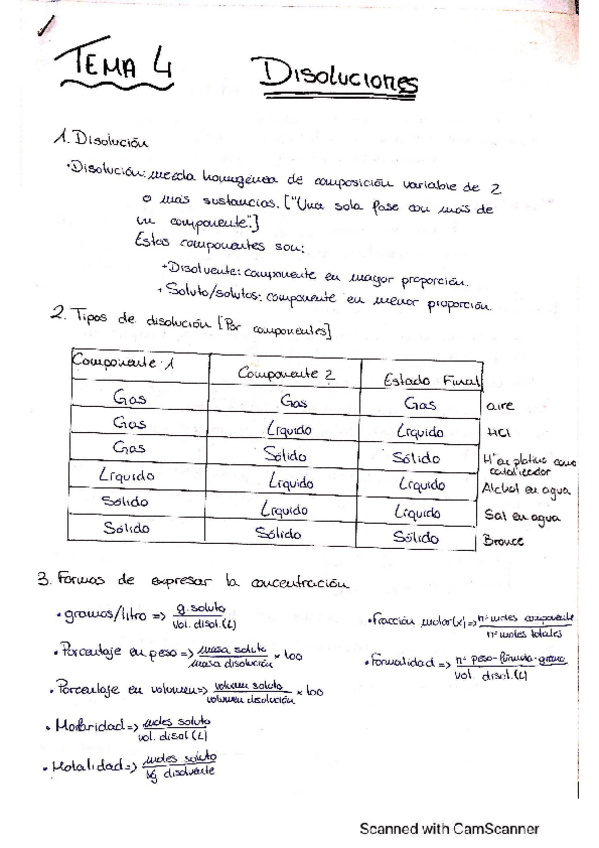 TEMA 4 Disoluciones
1. Disolución
·Disolución: mezcla homogénea de composición variable de 2
o más sustancias. ["Una sola fase con más de
un componente".]
Estos componentes son:
+Disolvente: componente en mayor proporción.
+Soluto/solutos: componente en menor proporción.
2. Tipos de disolución [Por componentes]
Componente 1 Componente 2 Estado Final
Gas Gas Gas aire
Gas Líquido Líquido HCl
Gas Sólido Sólido H⁺ en platino como
catalizador
Líquido Líquido Líquido Alchol en agua
Sólido Líquido Líquido Sal en agua
Sólido Sólido Sólido Bronce
3. Formas de expresar la concentración
·gramos/litro => g. soluto / vol. disol. (L)
·Porcentaje en peso => masa soluto / masa disolución × 100
·Porcentaje en volumen => volumen soluto / volumen disolución × 100
·Molaridad => moles soluto / vol. disol (L)
·Molalidad => moles soluto / kg disolvente
·Fracción molar (x) => nº moles componente / nº moles totales
·Formalidad => nº peso-fórmula-gramo / vol disol. (L)
Scanned with CamScanner